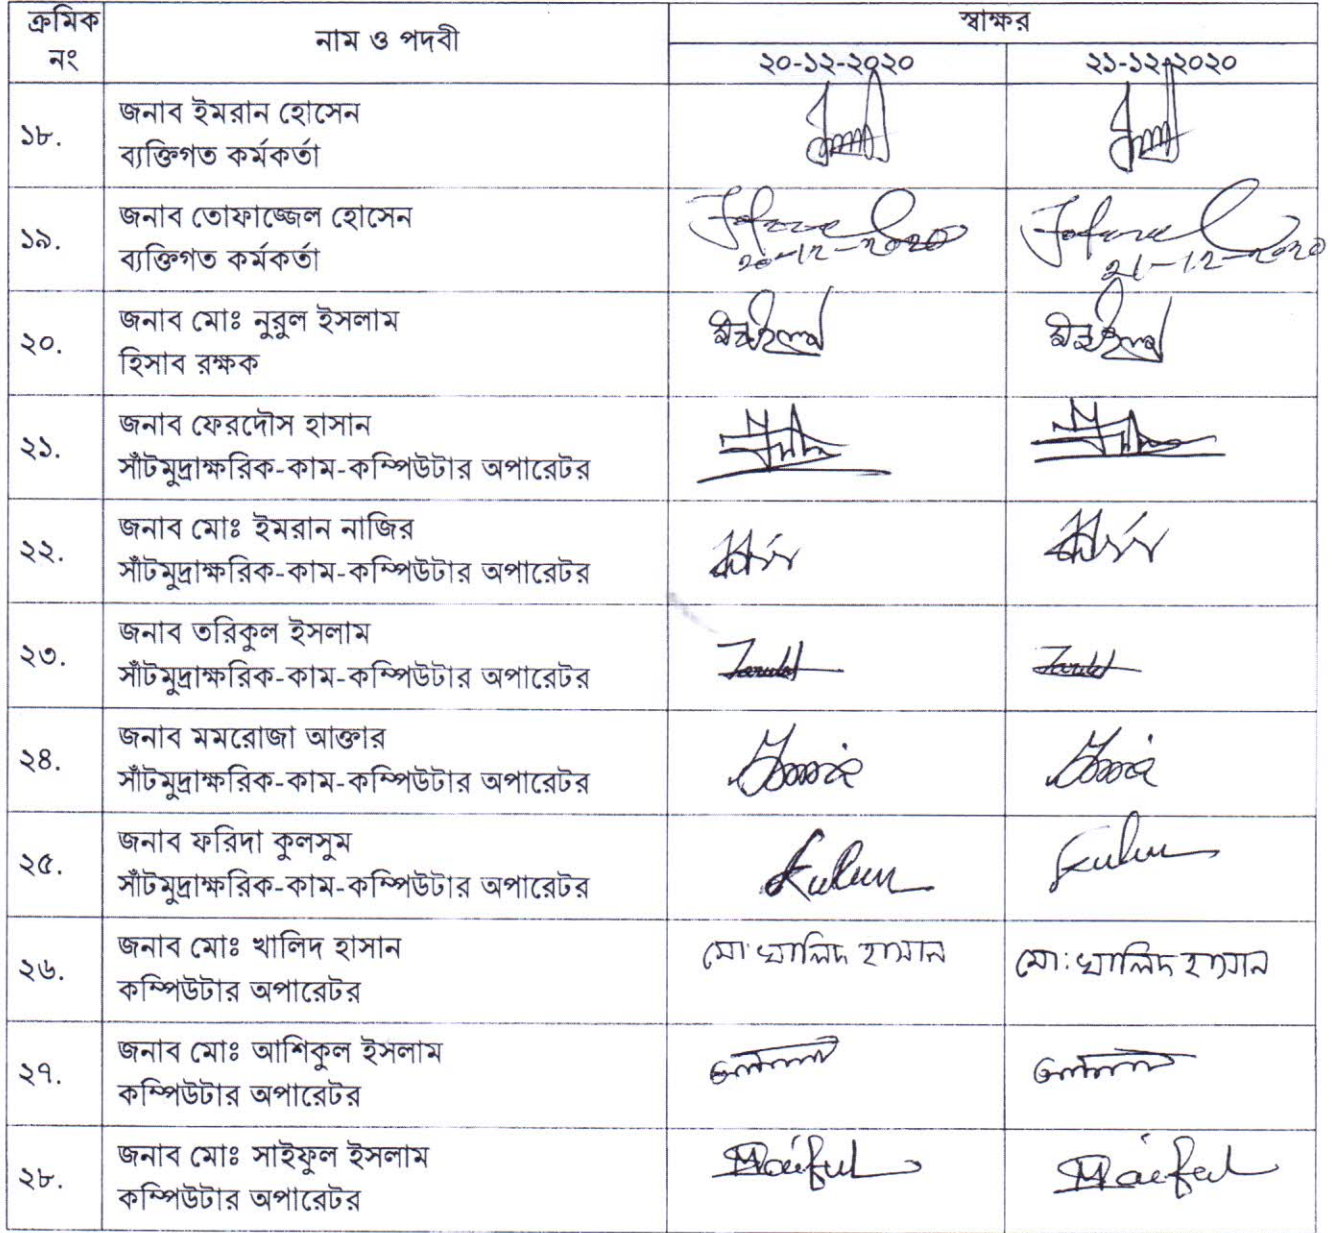 ক্রমিক নং
নাম ও পদবী
স্বাক্ষর
২০-১২-২০২০
২১-১২-২০২০
১৮.
জনাব ইমরান হোসেন
ব্যক্তিগত কর্মকর্তা
১৯.
জনাব তোফাজ্জেল হোসেন
ব্যক্তিগত কর্মকর্তা
20-12-2020
21-12-2020
২০.
জনাব মোঃ নুরুল ইসলাম
হিসাব রক্ষক
২১.
জনাব ফেরদৌস হাসান
সাঁটমুদ্রাক্ষরিক-কাম-কম্পিউটার অপারেটর
২২.
জনাব মোঃ ইমরান নাজির
সাঁটমুদ্রাক্ষরিক-কাম-কম্পিউটার অপারেটর
২৩.
জনাব তরিকুল ইসলাম
সাঁটমুদ্রাক্ষরিক-কাম-কম্পিউটার অপারেটর
২৪.
জনাব মমরোজা আক্তার
সাঁটমুদ্রাক্ষরিক-কাম-কম্পিউটার অপারেটর
২৫.
জনাব ফরিদা কুলসুম
সাঁটমুদ্রাক্ষরিক-কাম-কম্পিউটার অপারেটর
২৬.
জনাব মোঃ খালিদ হাসান
কম্পিউটার অপারেটর
মো: খালিদ হাসান
মো: খালিদ হাসান
২৭.
জনাব মোঃ আশিকুল ইসলাম
কম্পিউটার অপারেটর
২৮.
জনাব মোঃ সাইফুল ইসলাম
কম্পিউটার অপারেটর